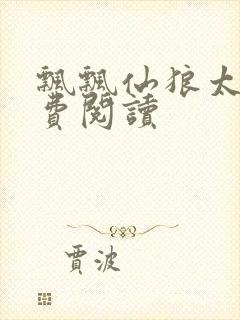 飄飄仙狼太
費閱讀
賈波